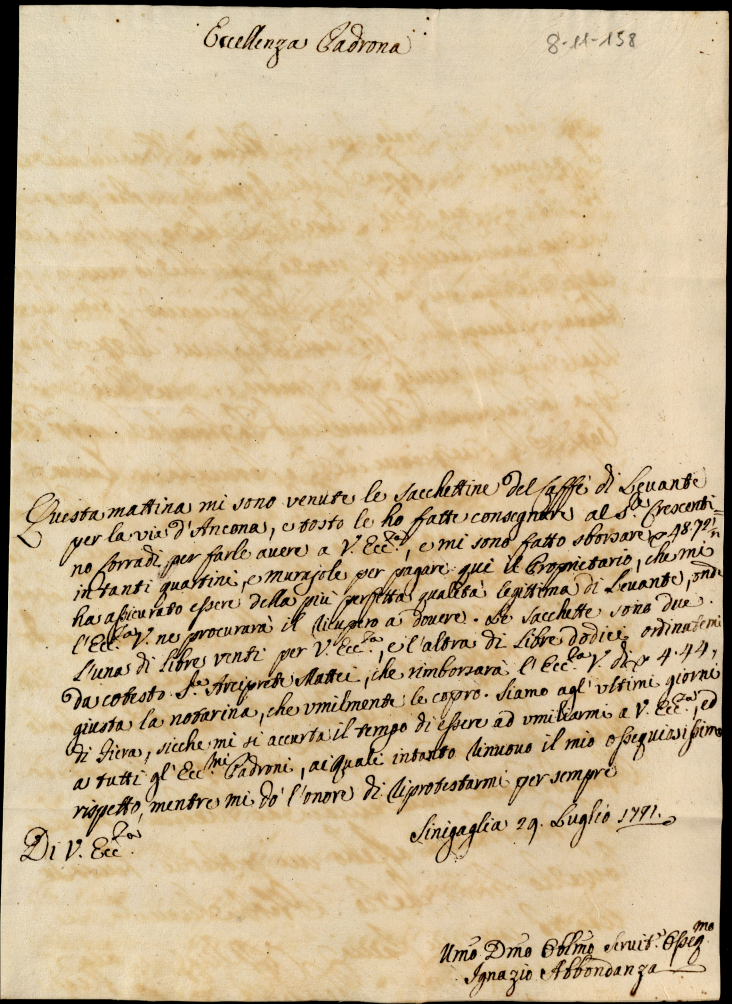 Eccellenza Padrona
8-11-158
Questa mattina mi sono venute le sacchettine del Caffè di Levante
per la via d'Ancona, e tosto le ho fatte consegnare al S.re Crescenti=
no Corradi per farle avere a V. Ecc.za, e mi sono fatto sborsare 48.72
in tanti quartini, e murajole per pagare qui il Proprietario, che mi
ha assicurato essere della più perfetta qualità legittima di Levante, onde
l'Ecc.za V. ne procurarà il ricupero a dovere. Le sacchette sono due
l'una di libre venti per V. Ecc.za, e l'altra di libre dodici ordinatemi
da cotesto S.re Arciprete Mattei, che rimborsarà l'Ecc.za V. di 4.44,
giusta la notarina, che umilmente le copro. Siamo agl'ultimi giorni
di Fiera, sicche mi si accurta il tempo di essere ad umiliarmi a V. Ecc.za, ed
a tutti gl'Ecc.mi Padroni, ai quali intanto rinuovo il mio ossequiosissimo
rispetto, mentre mi dò l'onore di riprotestarmi per sempre
Di V. Ecc.za
Sinigaglia 29. Luglio 1791.
Umo Dmo Oblmo Servit.e Osseq.mo
Ignazio Abbondanza